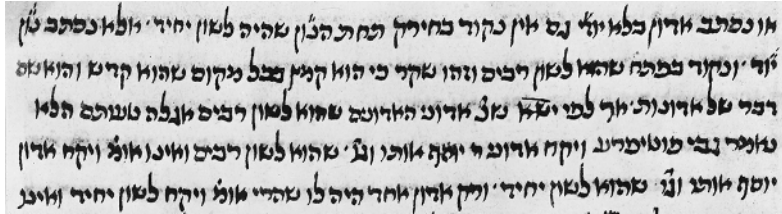 או נכתב אדון בלא יו"ד גם אין נקוד בחירק תחת הנו"ן שהיה לשון יחיד. אלא נכתב
יוד. ונקוד בפתח שהוא לשון רבים וזהו שקר כי הוא קמץ בכל מקום שהוא קדש והוא שם
דבר של אדונות. אך לפי אדוני האדונים שהוא לשון רבים אגלה טעותם הלא
נאמר גבי פוטיפרע ויקח אדוני יוסף אותו וגו'. שהוא לשון רבים ואינו אומ' ויקח אדון
יוסף אותו וגו' שהוא לשון יחיד. ורק אדון אחד היה לו שהרי אומ' ויקח לשון יחיד ואינו